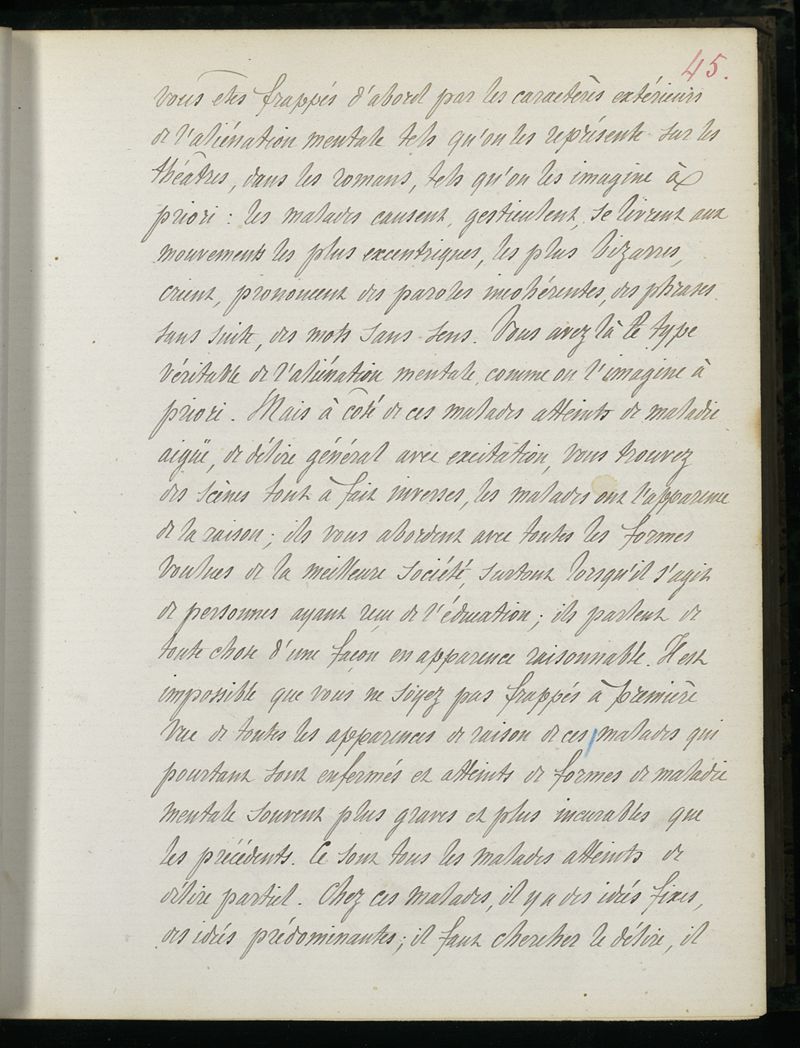 45.
vous êtes frappés d'abord par les caractères extérieurs
de l'aliénation mentale tels qu'on les représente sur les
théâtres, dans les romans, tels qu'on les imagine à
priori : les malades causent, gesticulent, se livrent aux
mouvements les plus excentriques, les plus bizarres,
crient, prononcent des paroles incohérentes, des phrases
sans suite, des mots sans sens. Vous avez là le type
véritable de l'aliénation mentale, comme on l'imagine à
priori. Mais à côté de ces malades atteints de maladie
aigüe, de délire général avec excitation, vous trouvez
des scènes tout à fait inverses, les malades ont l'apparence
de la raison ; ils vous abordent avec toutes les formes
voulues de la meilleure société, surtout lorsqu'il s'agit
de personnes ayant reçu de l'éducation ; ils parlent de
toute chose d'une façon en apparence raisonnable. Il est
impossible que vous ne soyez pas frappés à première
vue de toutes les apparences de raison de ces malades qui
pourtant sont enfermés et atteints de formes de maladie
mentale souvent plus graves et plus incurables que
les précédents. Ce sont tous les malades atteints de
délire partiel. Chez ces malades, il y a des idées fixes,
des idées prédominantes ; il faut chercher le délire, il